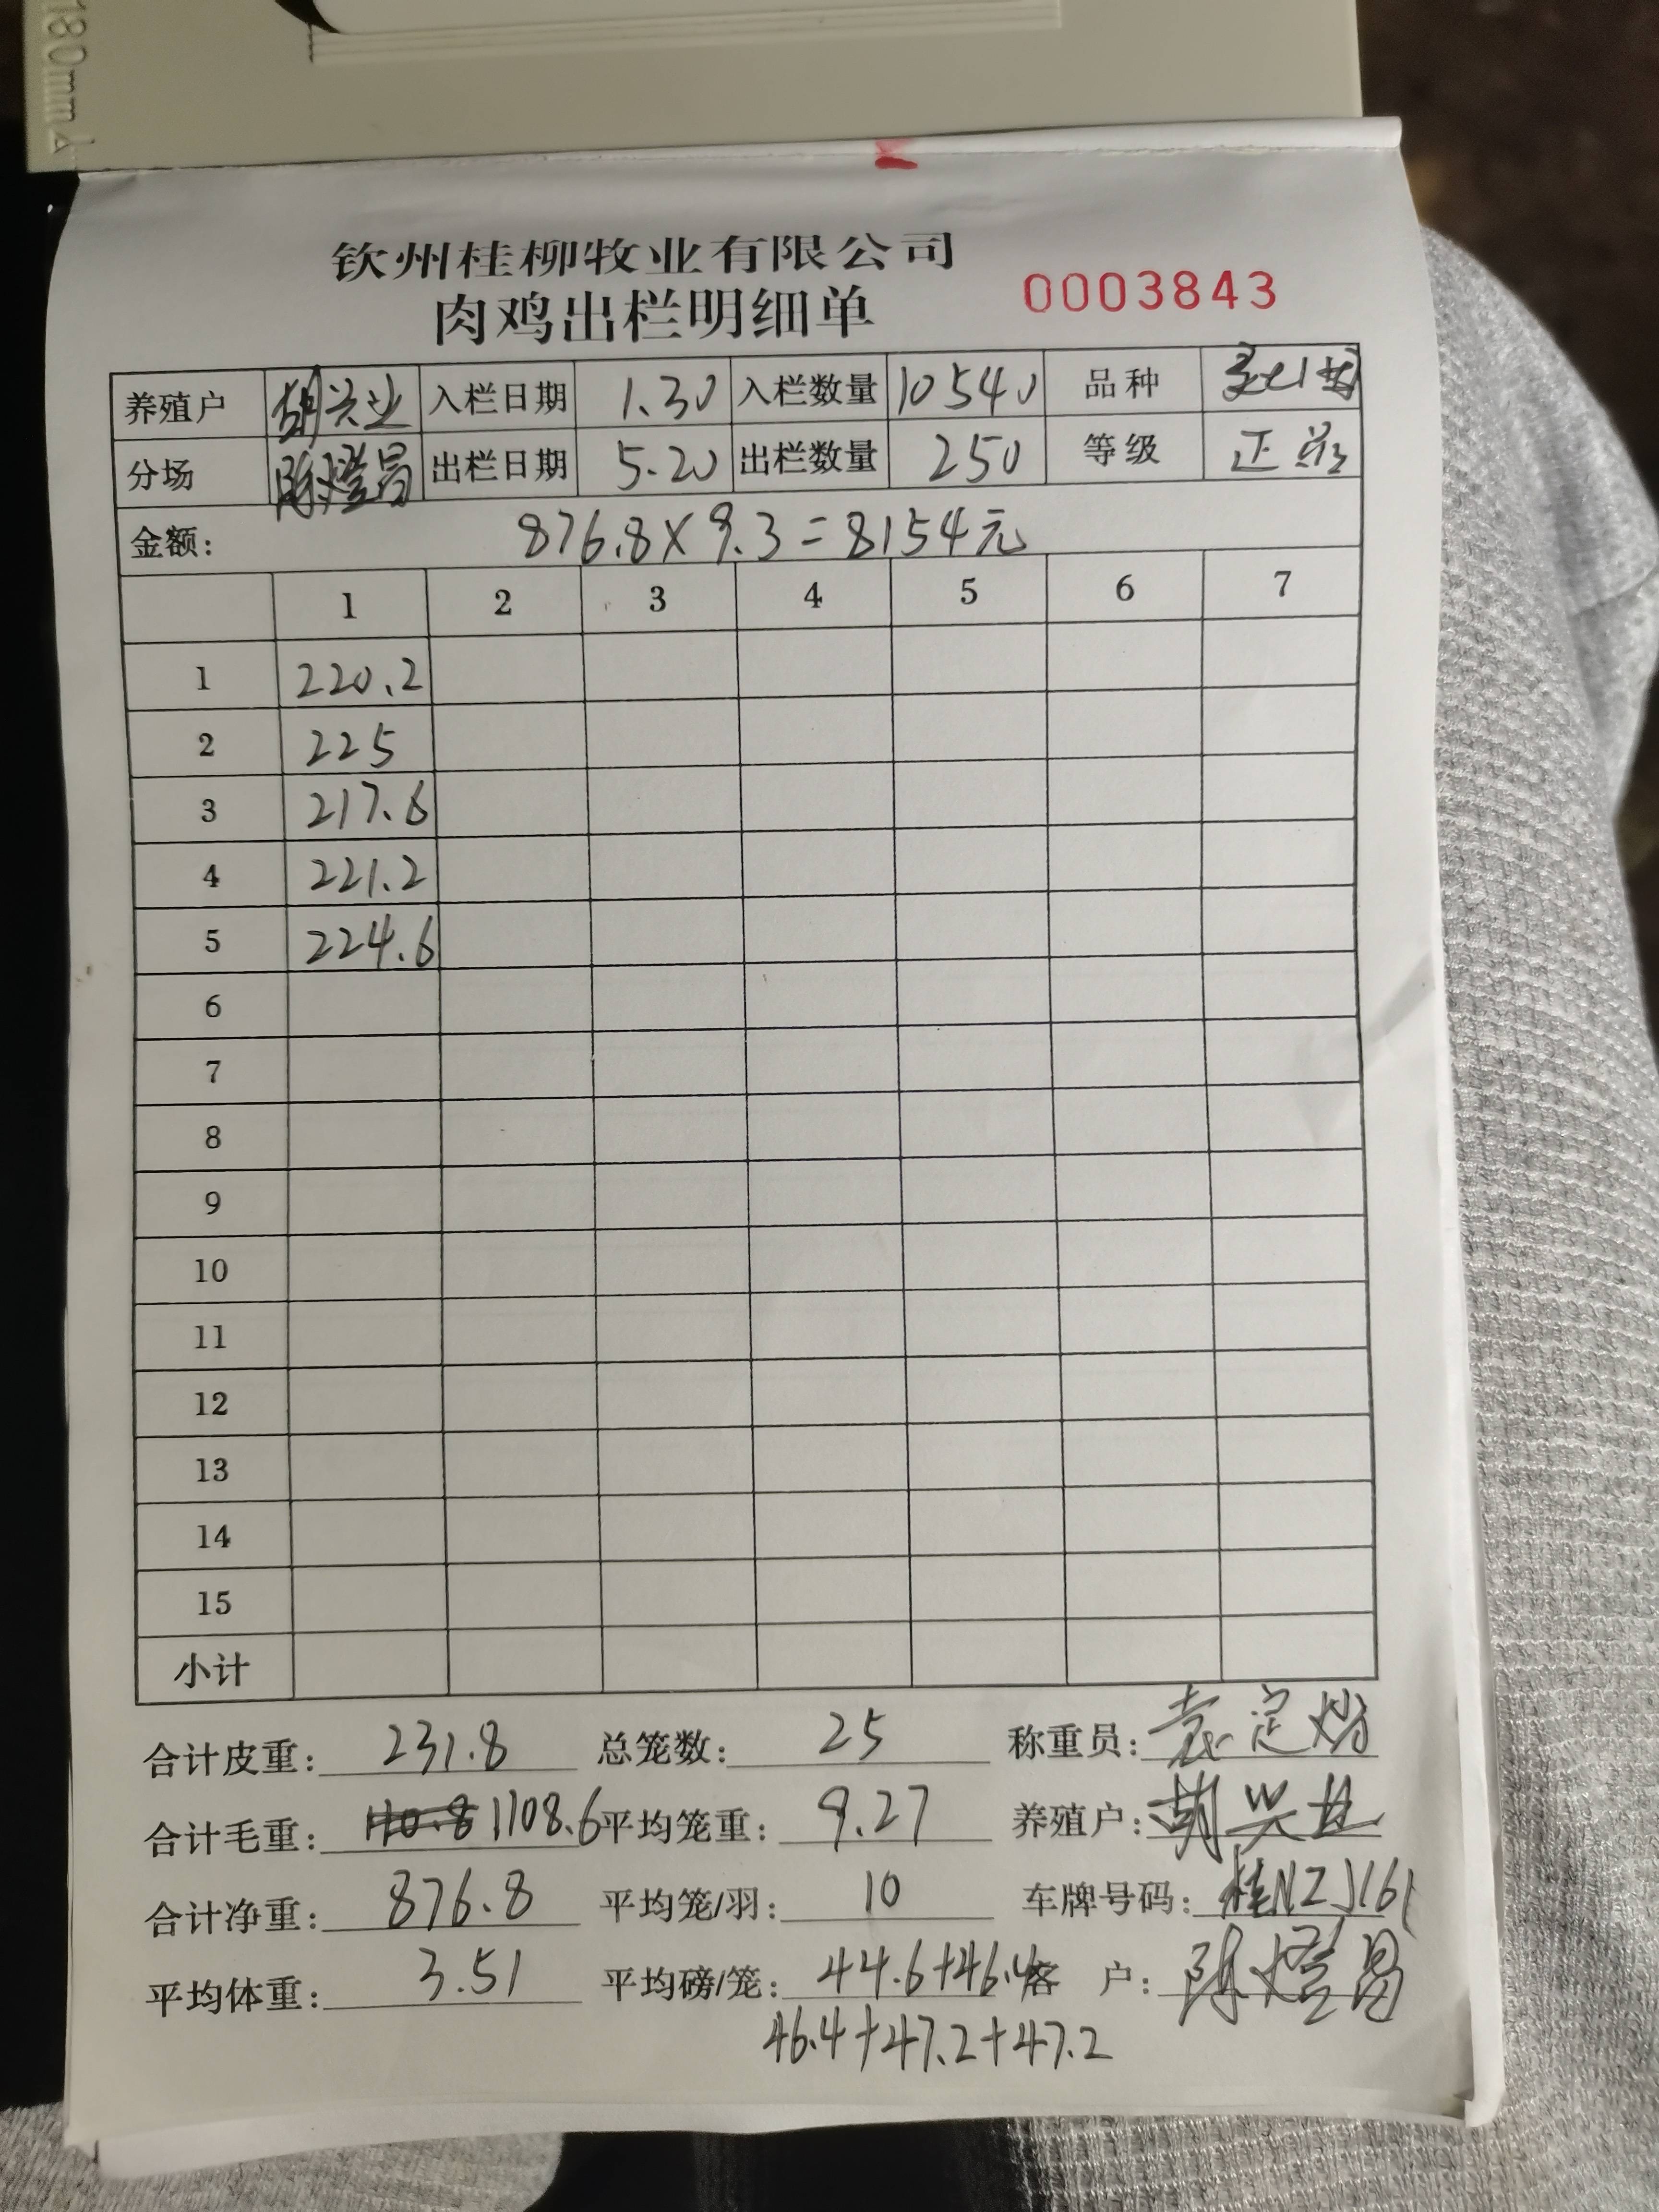 180mm
钦州桂柳牧业有限公司
肉鸡出栏明细单 0003843
养殖户 胡兴业 入栏日期 1.30 入栏数量 10540 品种
分场 陈燈昌 出栏日期 5.20 出栏数量 250 等级 正
金额: 876.8×9.3=8154元
1 2 3 4 5 6 7
1 220.2
2 225
3 217.6
4 221.2
5 224.6
6
7
8
9
10
11
12
13
14
15
小计
合计皮重: 231.8 总笼数: 25 称重员: 袁定
合计毛重: 1108.6 平均笼重: 9.27 养殖户: 胡兴业
合计净重: 876.8 平均笼/羽: 10 车牌号码: 桂NZJ161
平均体重: 3.51 平均磅/笼: 44.6+46.4 客户: 陈燈昌
46.4+47.2+47.2